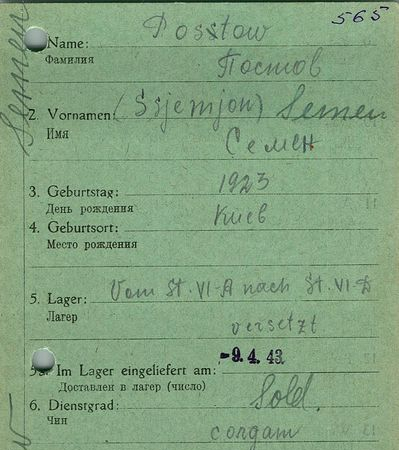 565
Name: Posstow
Фамилия
Постов
2. Vornamen: (Ssjemjon) Semen
Имя
Семен
3. Geburtstag: 1923
День рождения
4. Geburtsort: Киев
Место рождения
5. Lager: Vom St. VI-A nach St. VI-D
Лагер
versetzt
5a. Im Lager eingeliefert am: -9. 4. 43
Доставлен в лагер (число)
6. Dienstgrad: Sold.
Чин
солдат
Semen